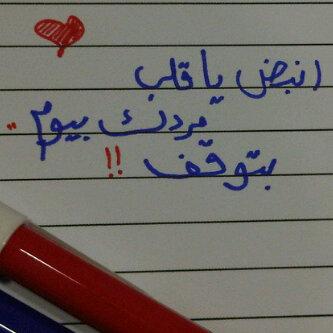 انبض يا قلب
مردك بيوم ..
بتوقف !!